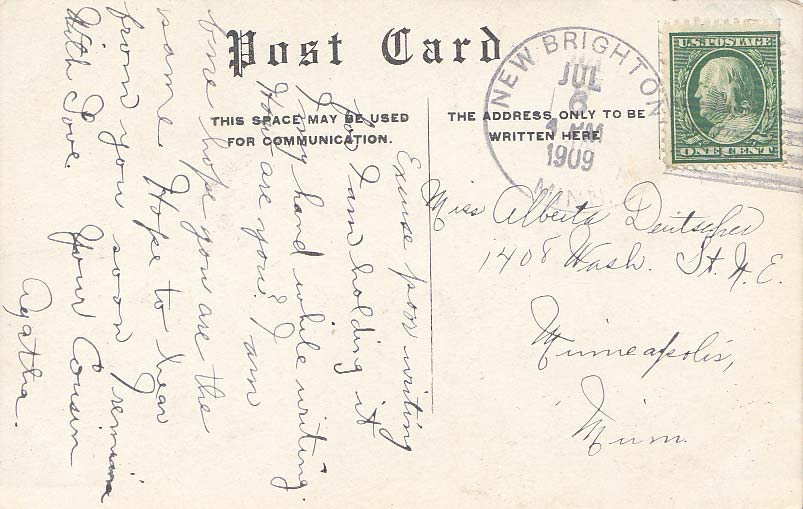 Post Card
THIS SPACE MAY BE USED
FOR COMMUNICATION.
THE ADDRESS ONLY TO BE
WRITTEN HERE
NEW BRIGHTON
JUL
6
1909
MINN.
U.S. POSTAGE
ONE CENT
Excuse poor writing
for I am holding it
in my hand while writing.
How are you? I am
fine hope you are the
same. Hope to hear
from you soon I remain
With Love. Your Cousin
Agatha.
Miss Alberta Deutscher
1408 Wash. St. N.E.
Minneapolis,
Minn.